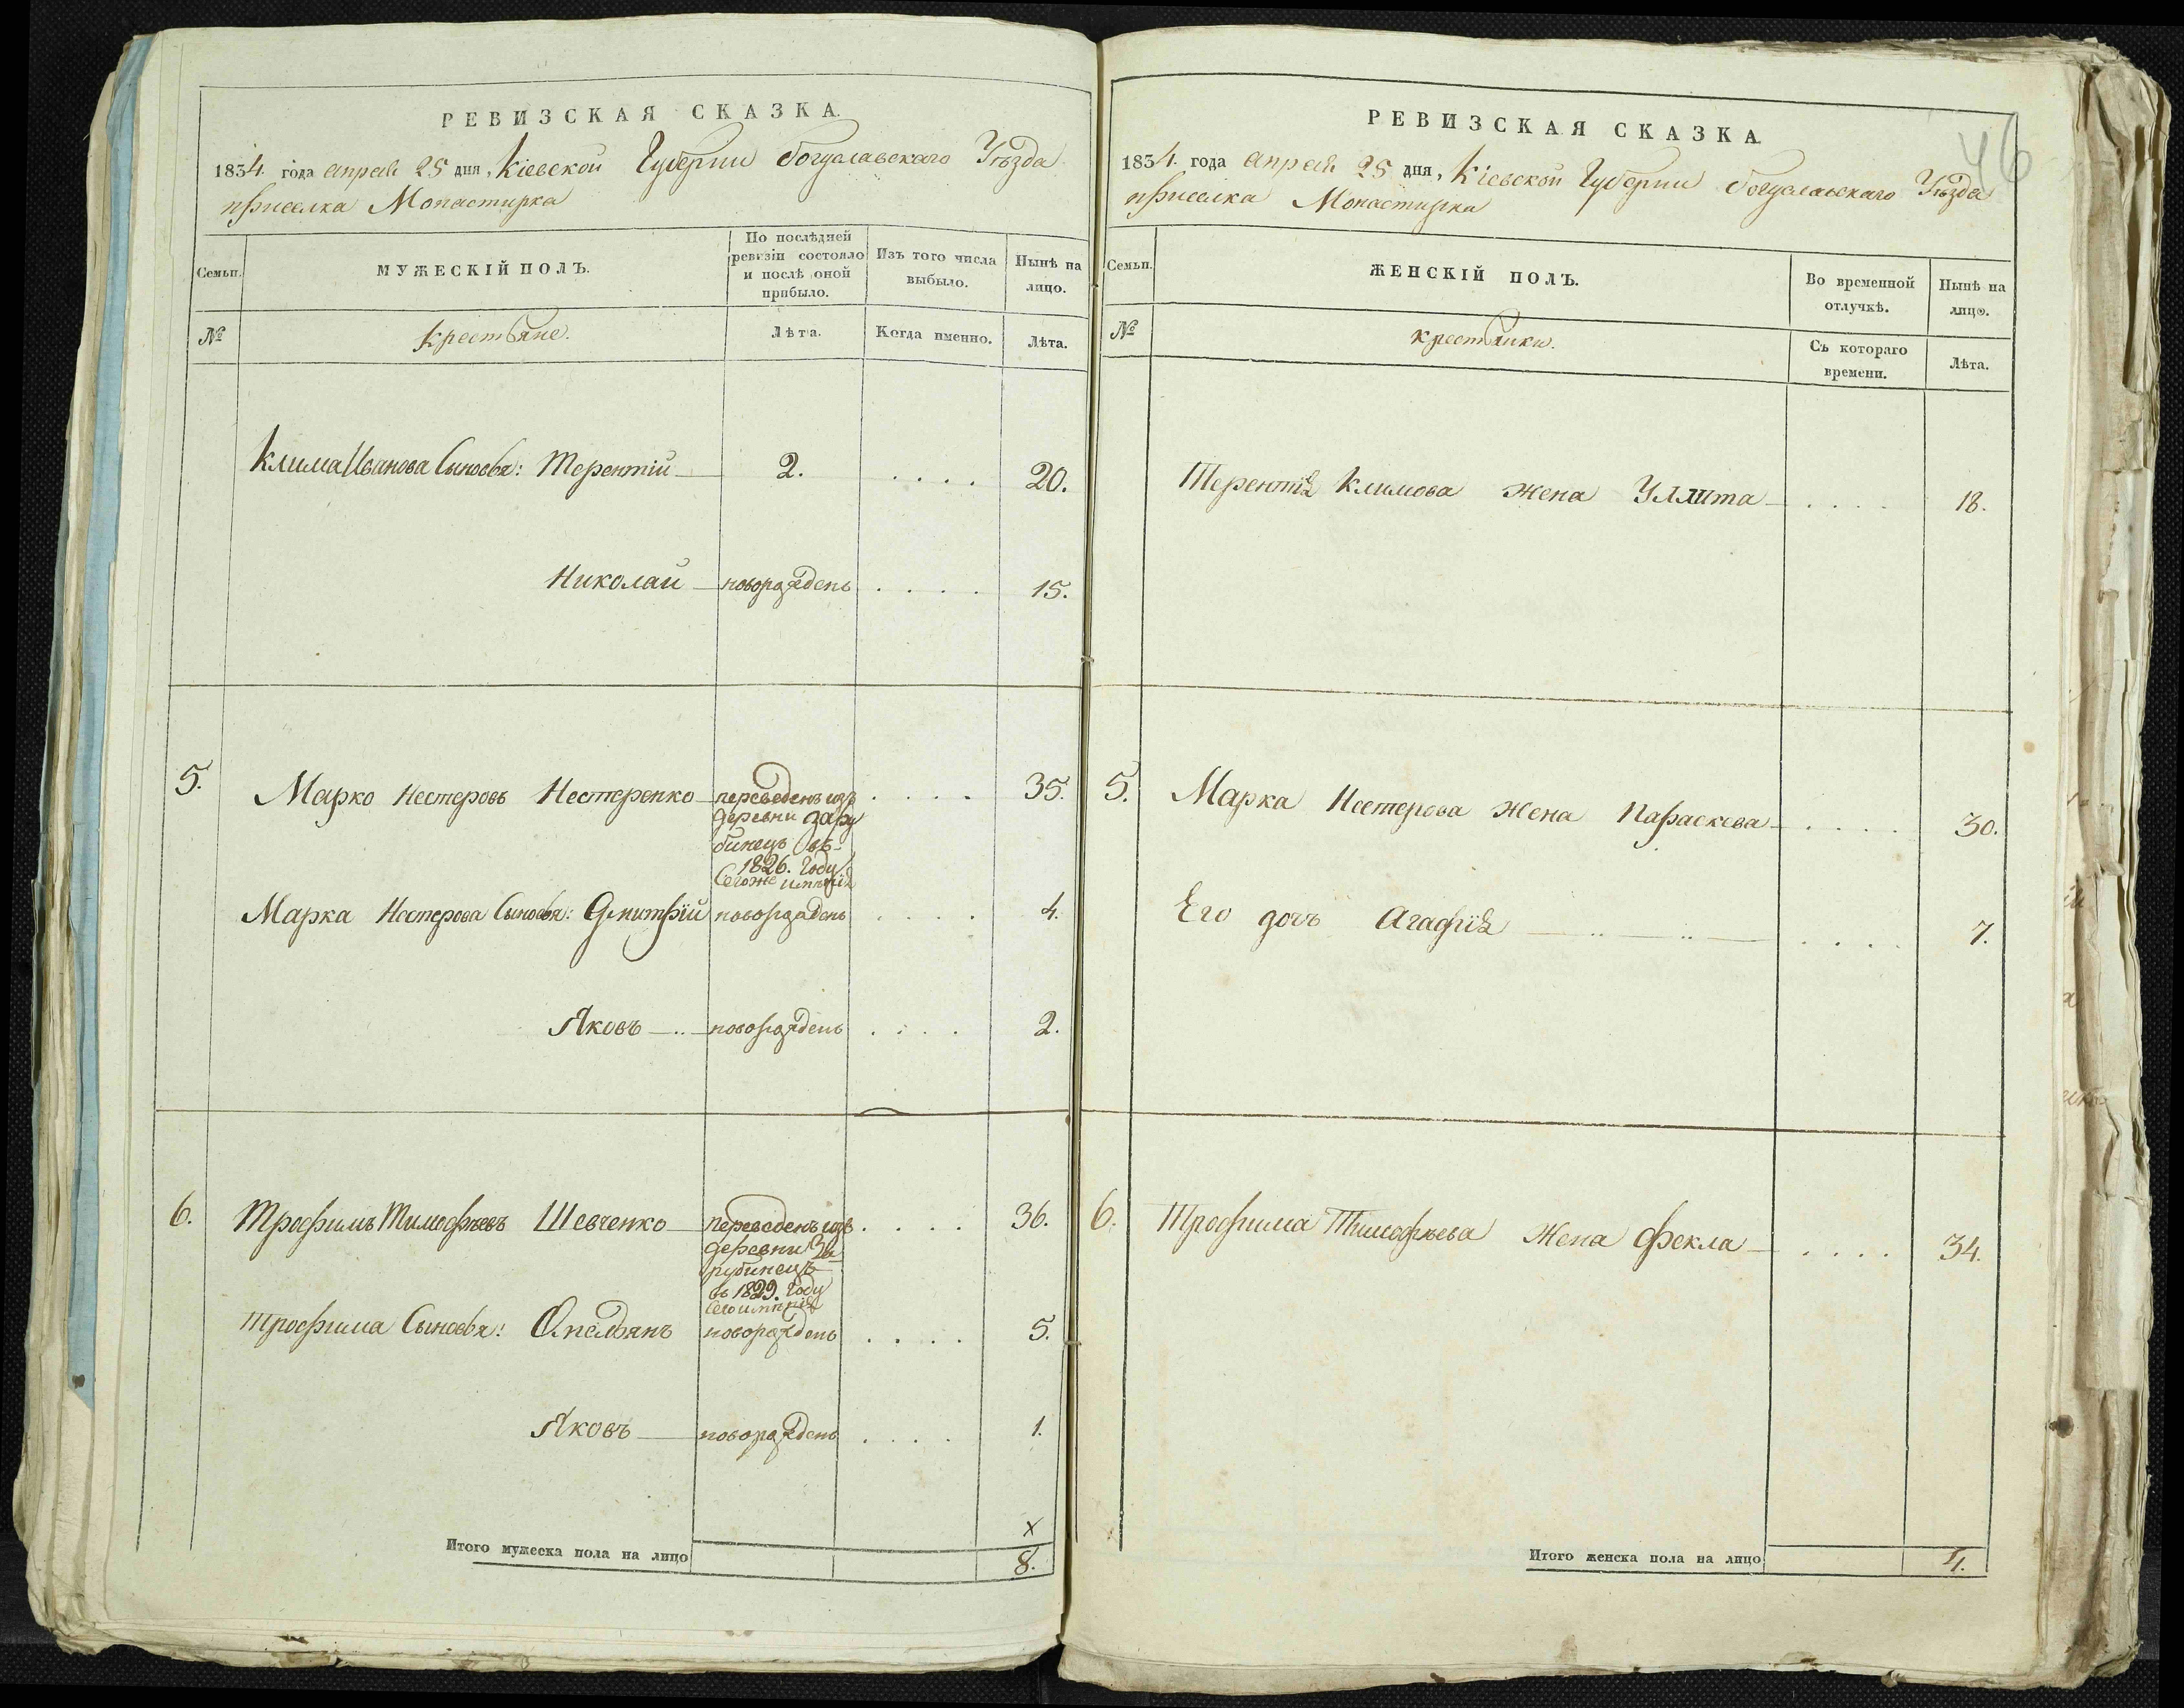 РЕВИЗСКАЯ СКАЗКА.
1834 года апреля 25 дня, Кіевской Губерніи Богуславскаго Уѣзда
приселка Монастирка
Семьи.
МУЖЕСКІЙ ПОЛЪ.
По послѣдней
ревизіи состояло
и послѣ оной
прибыло.
Изъ того числа
выбыло.
Нынѣ на
лицо.
№
Крестьяне.
Лѣта.
Когда именно.
Лѣта.
Клима Иванова Сыновья: Терентій 2. . . . . 20.
Николай новорожденъ . . . . 15.
5. Марко Нестеровъ Нестеренко переведенъ изъ . . . . 35.
деревни Зару
бинецъ въ
1826. Году
Сегоже имѣнія
Марка Нестерова Сыновья: Дмитрій новорожденъ . . . . 4.
Яковъ новорожденъ . . . . 2.
6. Трофимъ Тимофѣевъ Шевченко переведенъ изъ . . . . 36.
деревни За
рубинецъ
въ 1829. Году
Сего имѣнія
Трофима Сыновья: Омельянъ новорожденъ . . . . 5.
Яковъ новорожденъ . . . . 1.
х
Итого мужеска пола на лицо 8.
46
РЕВИЗСКАЯ СКАЗКА
1834. года апреля 25 дня, Кіевской Губерніи Богуславскаго Уѣзда
приселка Монастирка
Семьи.
ЖЕНСКІЙ ПОЛЪ.
Во временной
отлучкѣ.
Нынѣ на
лицо.
№
Крестьянки.
Съ котораго
времени.
Лѣта.
Терентія Климова жена Улита . . . . 18.
5. Марка Нестерова жена Параскева . . . . 30.
Его дочь Агафія . . . . 7.
6. Трофима Тимофѣева жена Фекла . . . . 34.
Итого женска пола на лицо 4.